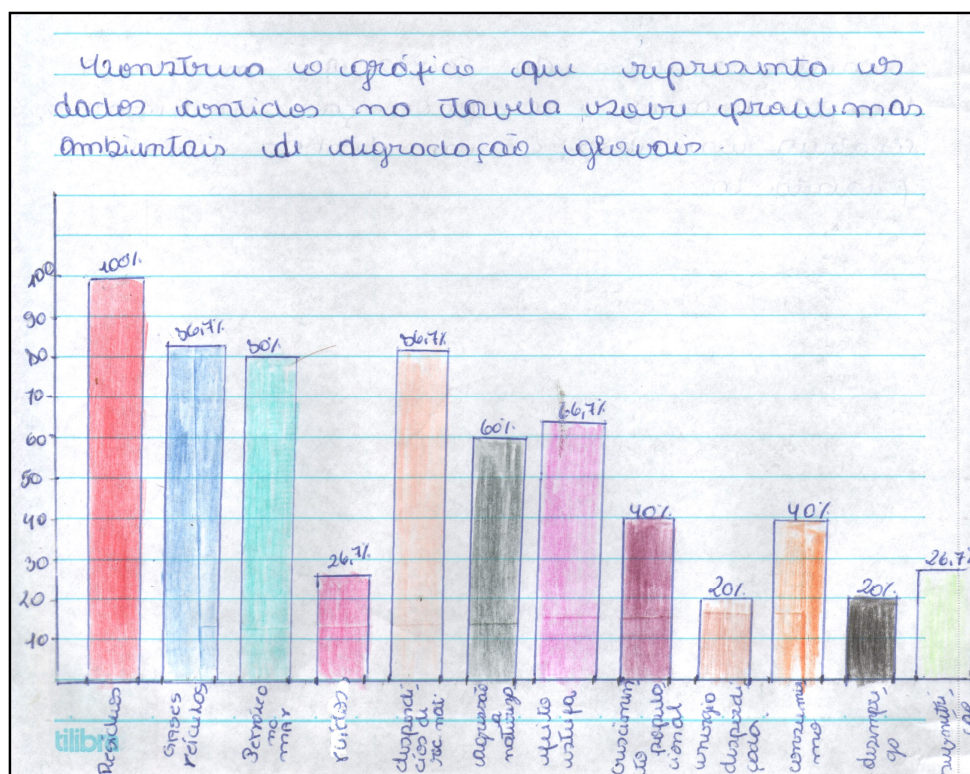 Construa o gráfico que representa os
dados contidos na tabela sobre problemas
ambientais de degradação globais.
100%
86,7%
80%
26,7%
86,7%
60%
66,7%
40%
20%
40%
20%
26,7%
100
90
80
70
60
50
40
30
20
10
Resíduos
Gases
veículos
Petróleo
no
mar
ruídos
desperdí
cios di
rec. nat.
agressão
a
natureza
efeito
estufa
crescimen
to popula
cional
energia
desperdi
çada
consumis
mo
desmpre,
go
tilibra